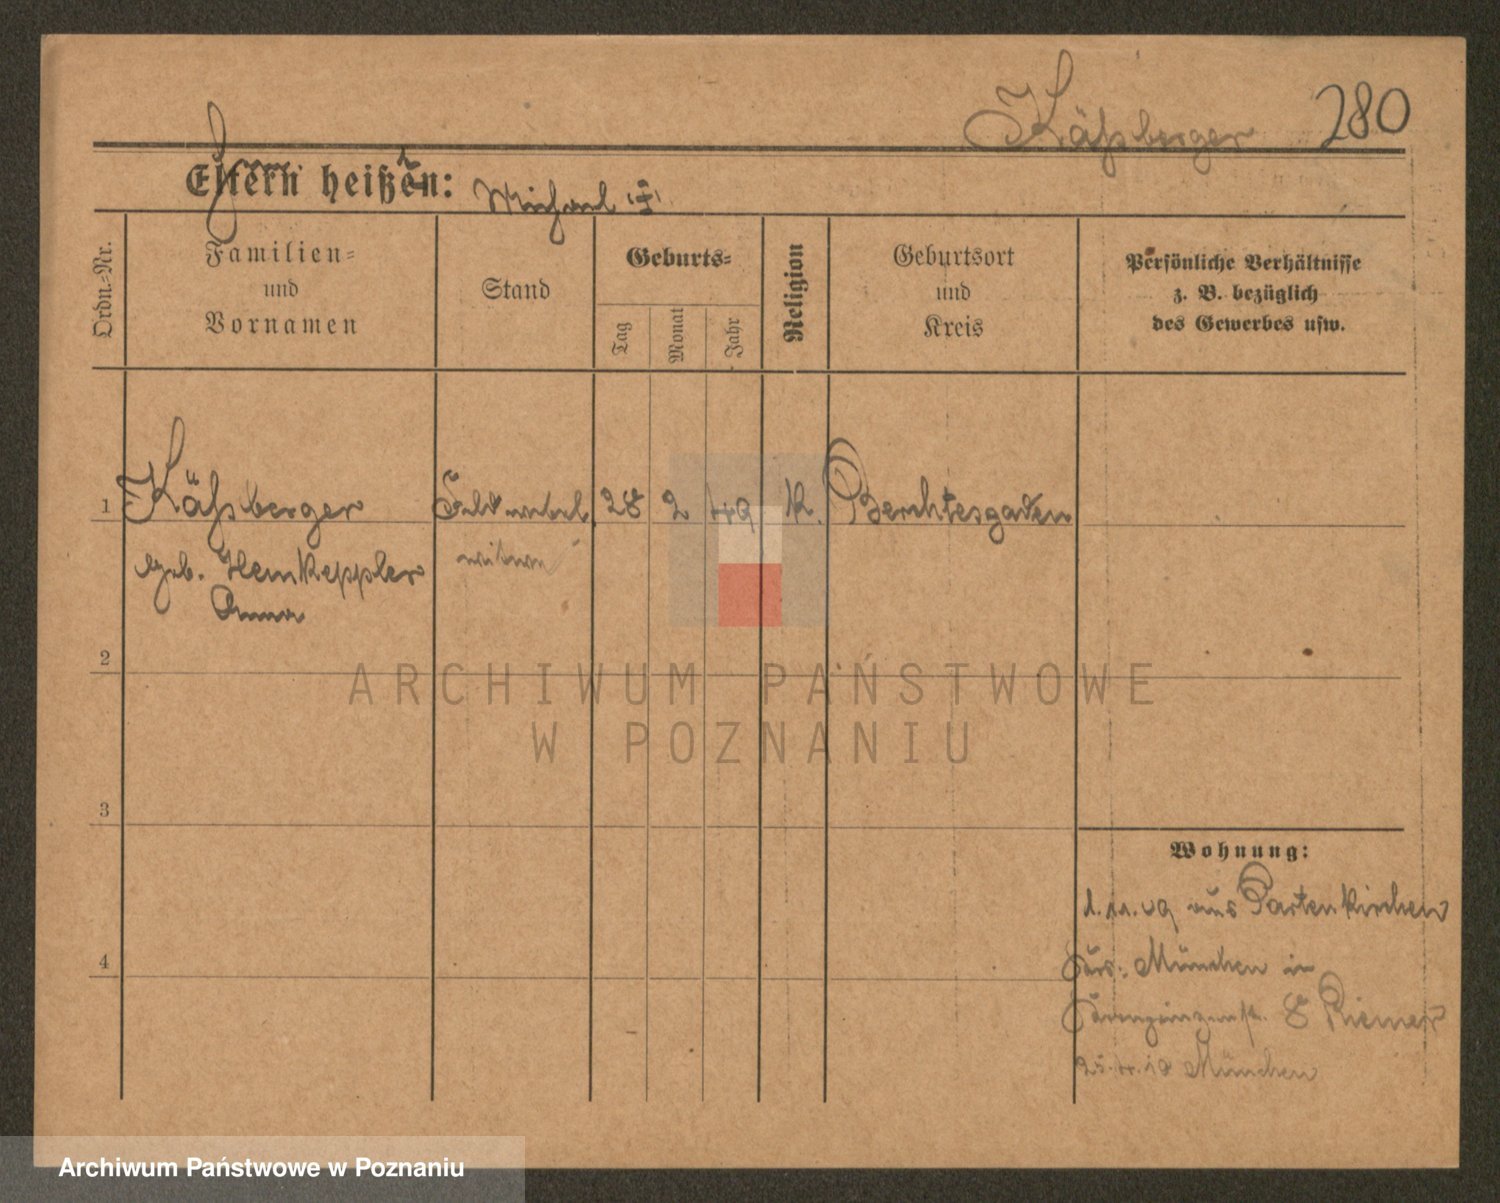 Käßberger 280
Eltern heißen: Michael
Ordn.-Nr.
Familien-
und
Vornamen
Stand
Geburts-
Tag
Monat
Jahr
Religion
Geburtsort
und
Kreis
Persönliche Verhältnisse
z. B. bezüglich
des Gewerbes usw.
1 Käßberger Feldwebel 28 2 49 K. Berchtesgaden
witwe
geb. Hemkeppler
Anna
2
3
4
Wohnung:
1.11.09 aus Partenkirchen
München in
8 Riemer
25.4.10 München
ARCHIWUM PAŃSTWOWE
W POZNANIU
Archiwum Państwowe w Poznaniu